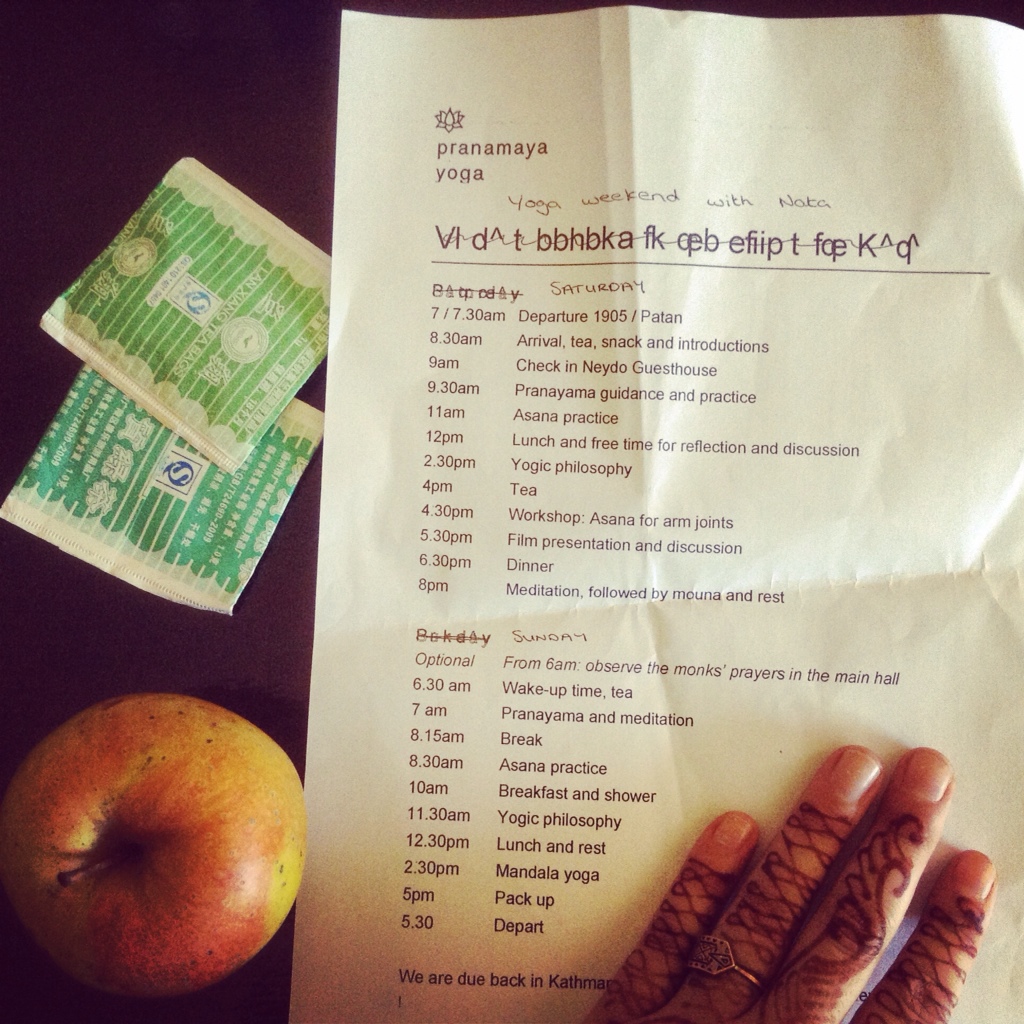 pranamaya
yoga
Yoga weekend with Nata
SATURDAY
7 / 7.30am Departure 1905 / Patan
8.30am Arrival, tea, snack and introductions
9am Check in Neydo Guesthouse
9.30am Pranayama guidance and practice
11am Asana practice
12pm Lunch and free time for reflection and discussion
2.30pm Yogic philosophy
4pm Tea
4.30pm Workshop: Asana for arm joints
5.30pm Film presentation and discussion
6.30pm Dinner
8pm Meditation, followed by mouna and rest
SUNDAY
Optional From 6am: observe the monks' prayers in the main hall
6.30 am Wake-up time, tea
7 am Pranayama and meditation
8.15am Break
8.30am Asana practice
10am Breakfast and shower
11.30am Yogic philosophy
12.30pm Lunch and rest
2.30pm Mandala yoga
5pm Pack up
5.30 Depart
We are due back in Kathmar
LAN XIANG TEA BAGS
GB/T24690-2009